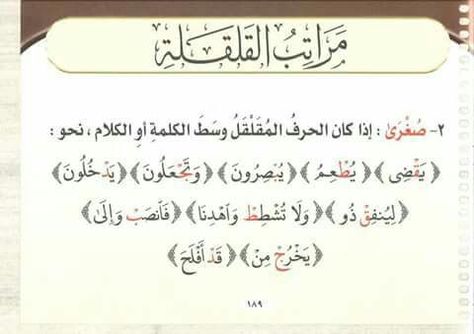 مَرَاتِبُ القَلقَلَةِ
٢- صُغْرَىٰ : إذا كان الحرفُ المُقَلْقَلُ وسَطَ الكلمةِ أو الكلام ، نحو :
﴿ يَقْضِى ﴾ ﴿ يُطْعِمُ ﴾ ﴿ يُبْصِرُونَ ﴾ ﴿ وَتَجْعَلُونَ ﴾ ﴿ يَدْخُلُونَ ﴾
﴿ لِيُنفِقْ ذُو ﴾ ﴿ وَلَا تُشْطِطْ وَٱهْدِنَا ﴾ ﴿ فَٱنصَبْ وَإِلَىٰ ﴾
﴿ يَخْرُجْ مِنْ ﴾ ﴿ قَدْ أَفْلَحَ ﴾
١٨٩